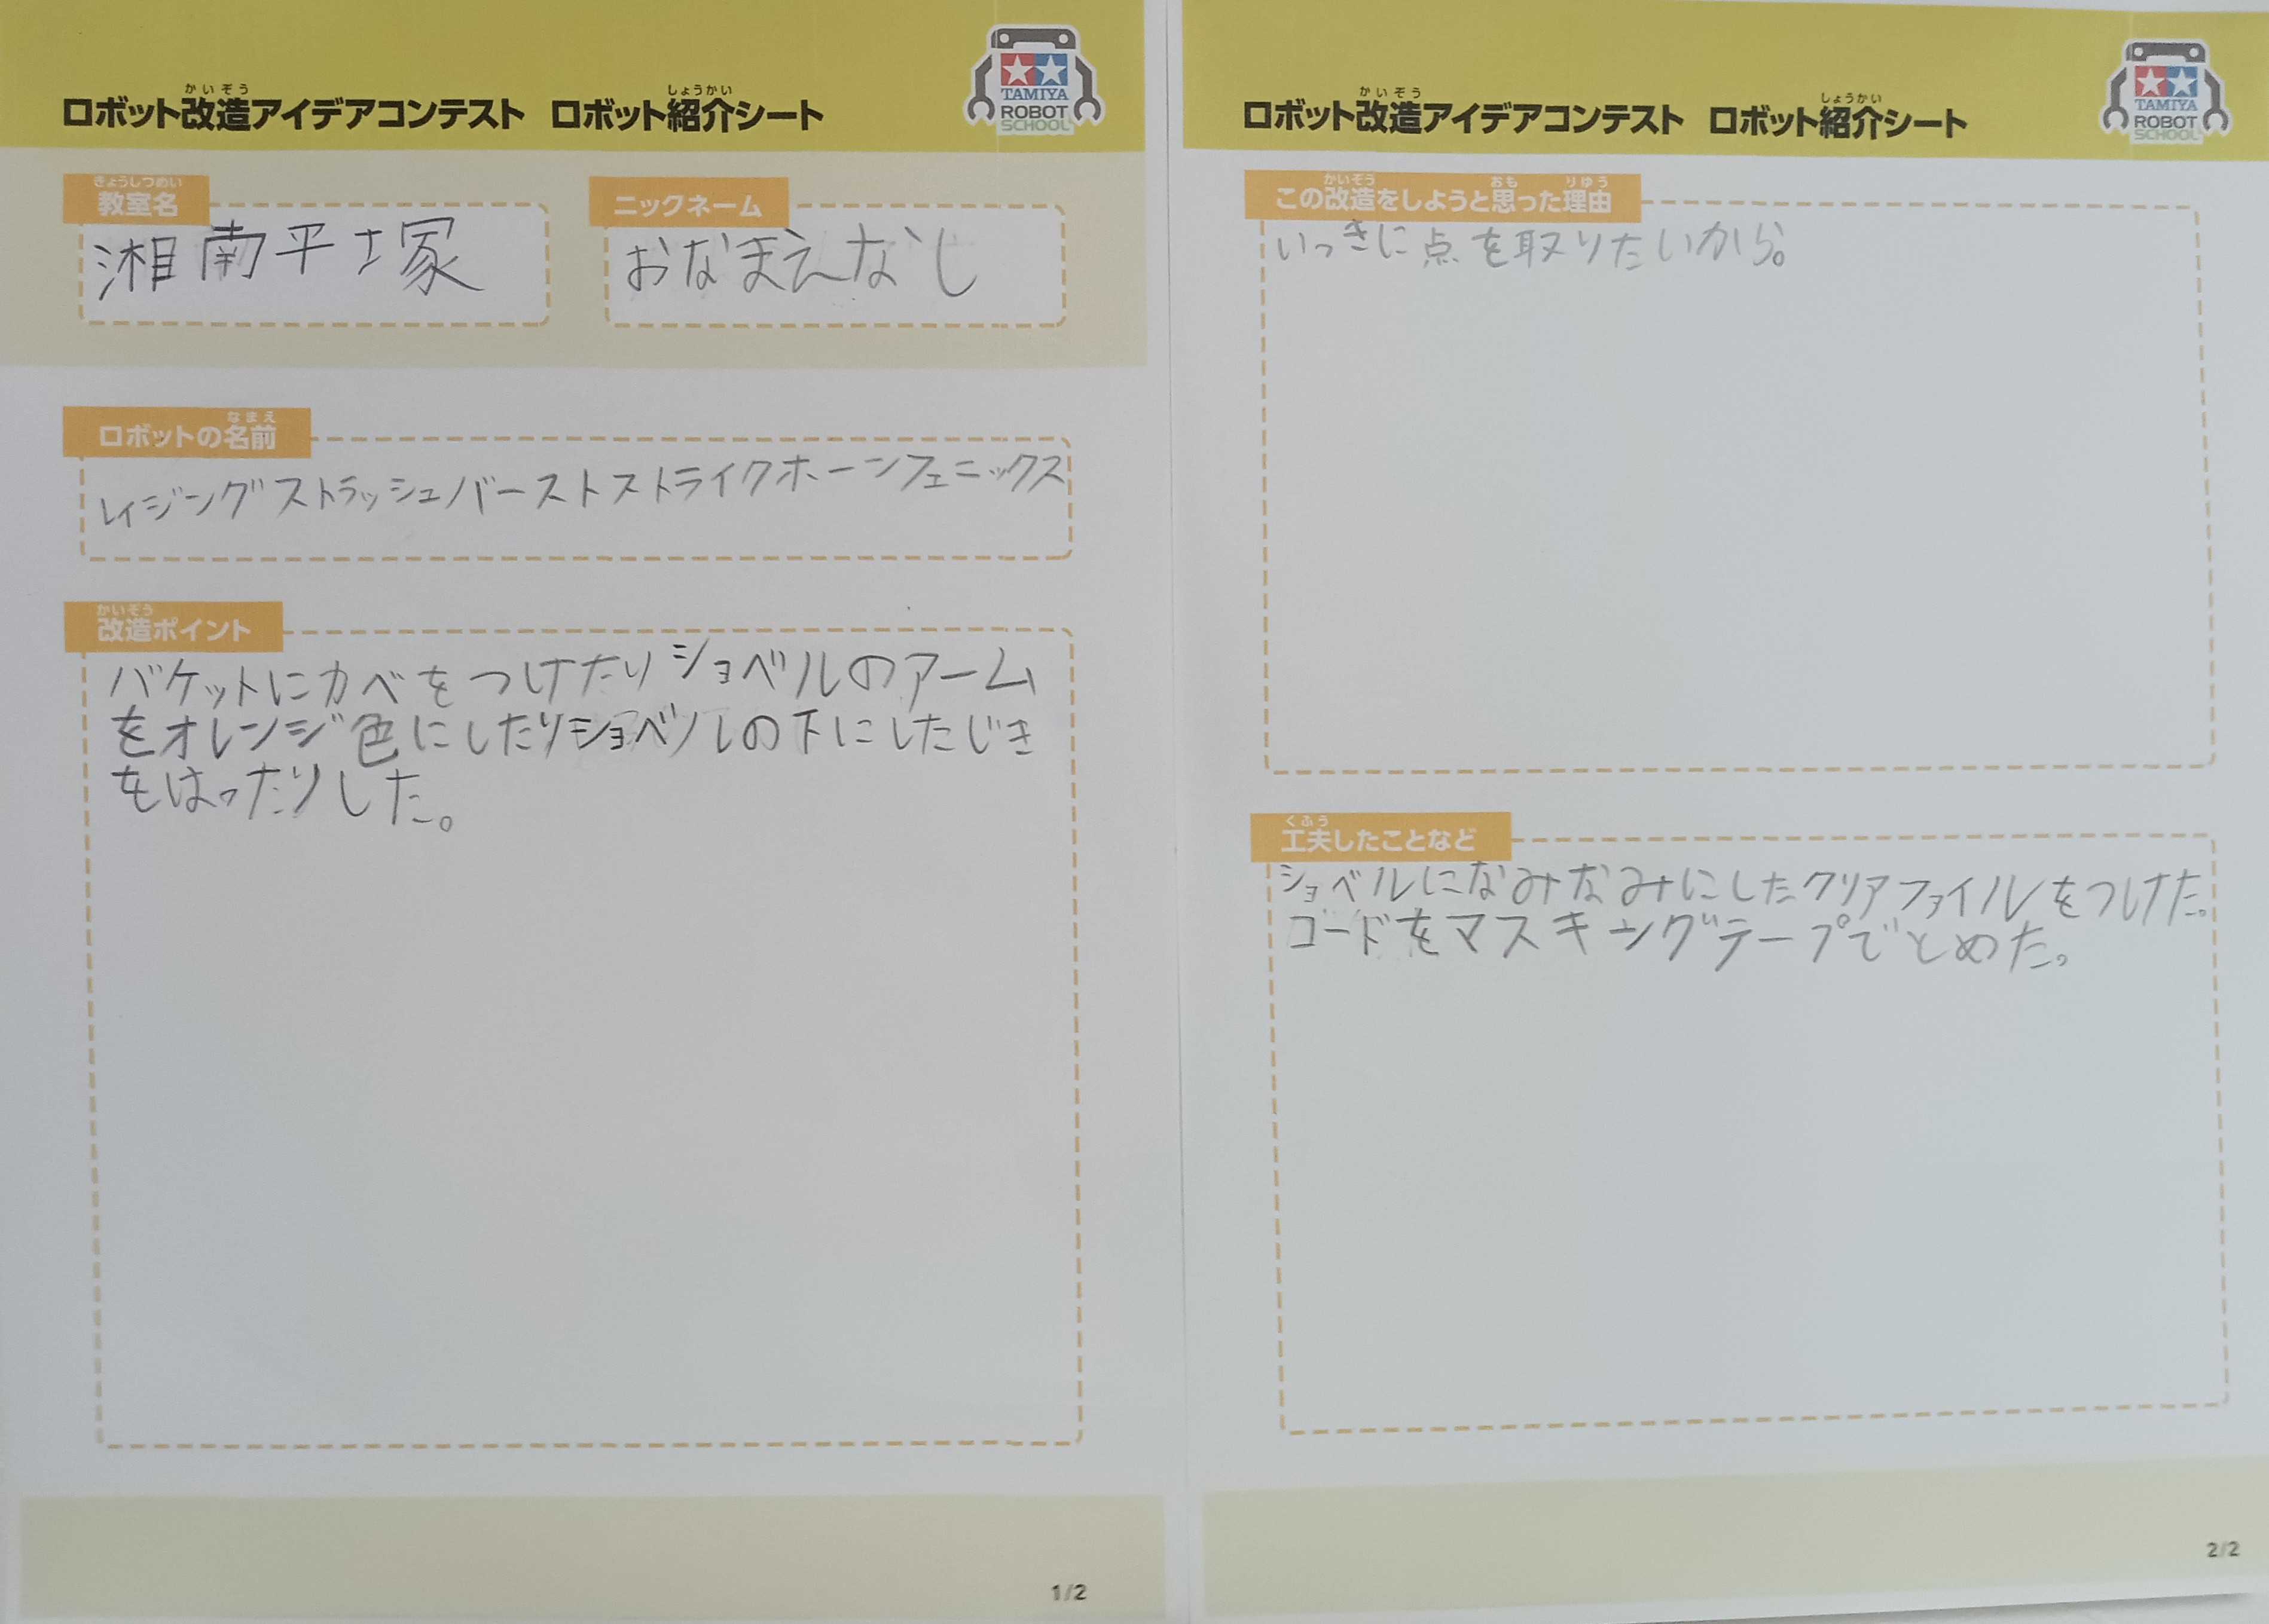 ロボット改造アイデアコンテスト ロボット紹介シート
かいぞう
しょうかい
TAMIYA
ROBOT
SCHOOL
きょうしつめい
教室名
湘南平塚
ニックネーム
おなまえなし
なまえ
ロボットの名前
レイジングストラッシュバーストストライクホーンフェニックス
かいぞう
改造ポイント
バケットにカベをつけたりショベルのアーム
をオレンジ色にしたりショベルの下にしたじき
をはったりした。
1/2
かいぞう
しょうかい
ロボット改造アイデアコンテスト ロボット紹介シート
TAMIYA
ROBOT
SCHOOL
かいぞう おも りゆう
この改造をしようと思った理由
いっきに点を取りたいから。
くふう
工夫したことなど
ショベルになみなみにしたクリアファイルをつけた。
コードをマスキングテープでとめた。
2/2